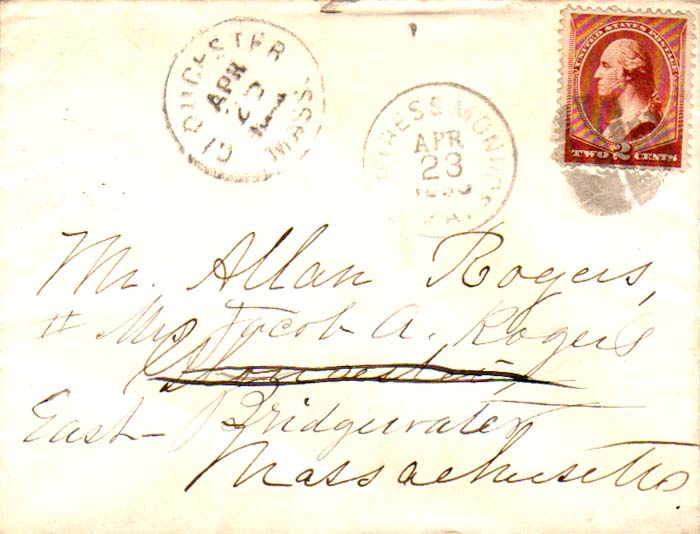 GLOUCESTER MASS.
APR
25
FORTRESS MONROE
APR
23
VA.
UNITED STATES POSTAGE
TWO 2 CENTS
Mr. Allan Rogers,
Mrs Jacob A. Rogers
Gloucester,
East- Bridgewater
Massachusetts.